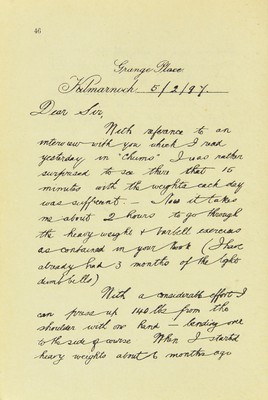 46
Grange Place.
Kilmarnock 5/2/97.
Dear Sir,
With referance to an
interview with you which I read
yesterday in "Chums" I was rather
surprised to see there that 15
minutes with the weights each day
was sufficient — Now it takes
me about 2 hours to go through
the heavy weight & barbell exercises
as contained in your book (I have
already had 3 months of the light
dumbbells)
With a considerable effort I
can press up 140 lbs from the
shoulder with one hand — bending over
to the side of course When I started
heavy weights about 6 months ago